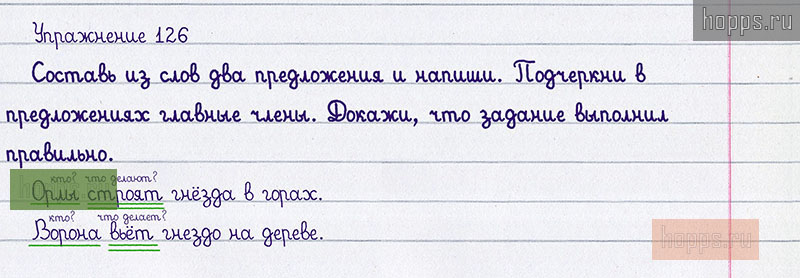 hopps.ru
Упражнение 126
Составь из слов два предложения и напиши. Подчеркни в
предложениях главные члены. Докажи, что задание выполнил
правильно.
кто? что делают?
Орлы строят гнёзда в горах.
кто? что делает?
Ворона вьёт гнездо на дереве.
hopps.ru